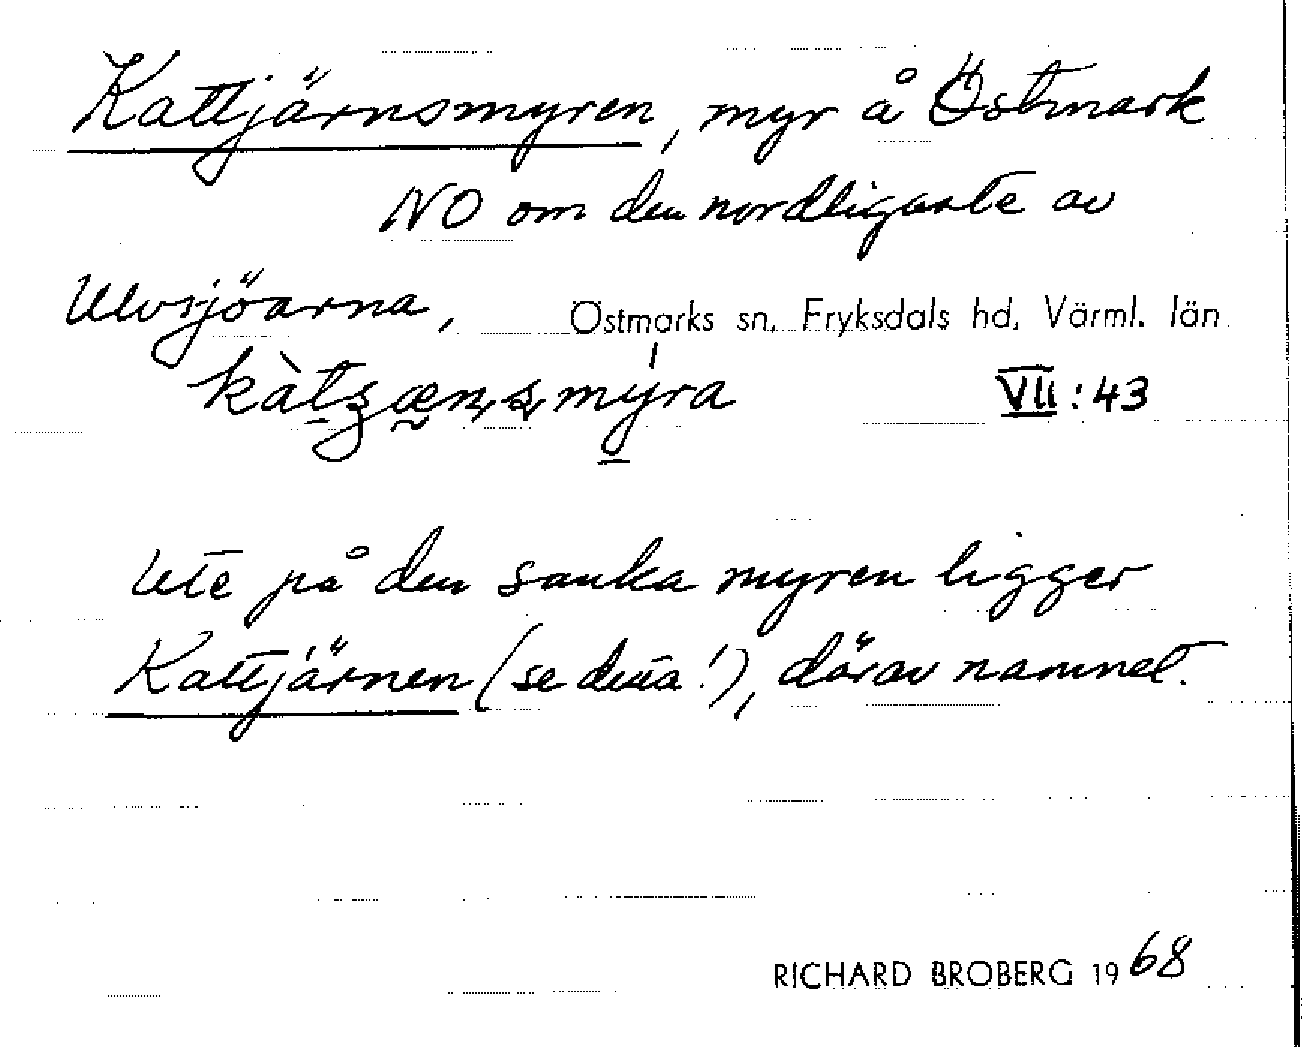 Kattjärnsmyren, myr å Östmark
NO om den nordligaste av
Ulvsjöarna, Östmarks sn, Fryksdals hd, Värml. län
VII:43
Ute på den sanka myren ligger
Kattjärnen (se detta!), därav namnet.
RICHARD BROBERG 1968